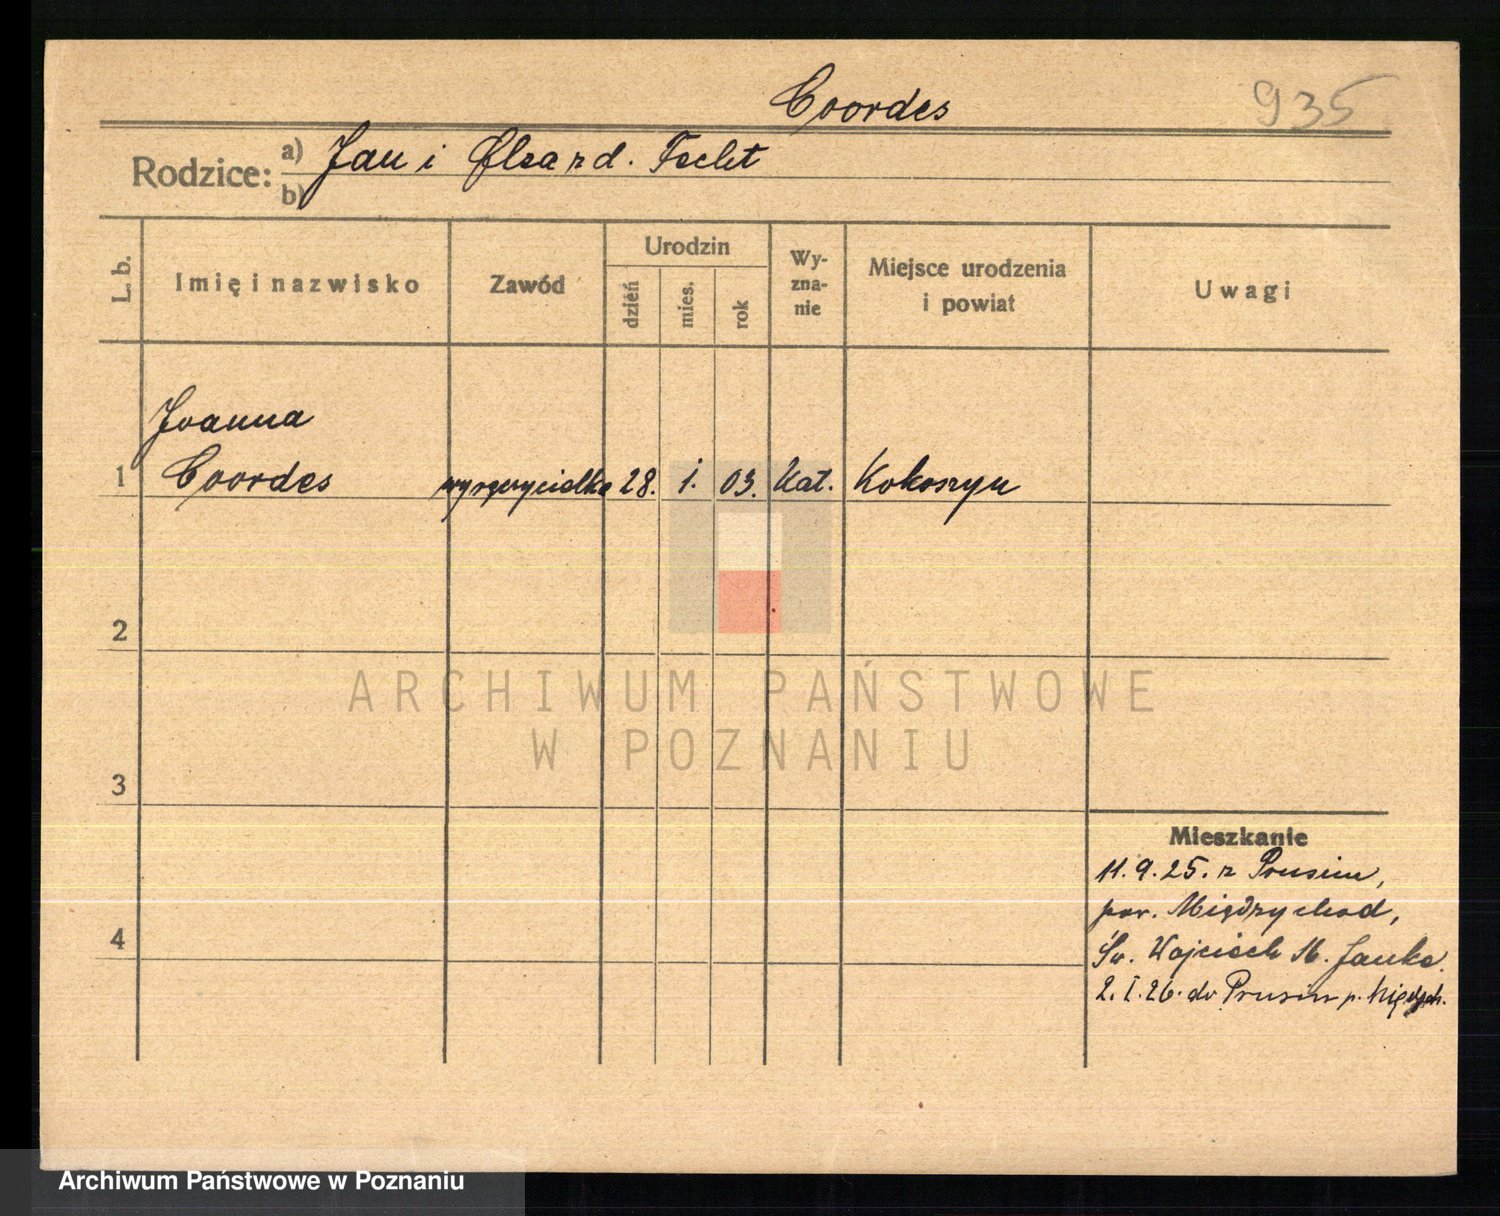 Coordes
935
Rodzice: a) Jan i Olga z d. Techt
b)
L. b.
Imię i nazwisko
Zawód
Urodzin
dzień
mies.
rok
Wy-
zna-
nie
Miejsce urodzenia
i powiat
Uwagi
Joanna
1 Coordes 28. 1. 03. Kat. Kokoszyn
2
3
4
Mieszkanie
11.9.25. z Prusim,
pow. Międzychod,
Św. Wojciech 16. Janke.
2.I.26. do Prusim p. Międzych.
ARCHIWUM PAŃSTWOWE
W POZNANIU
Archiwum Państwowe w Poznaniu